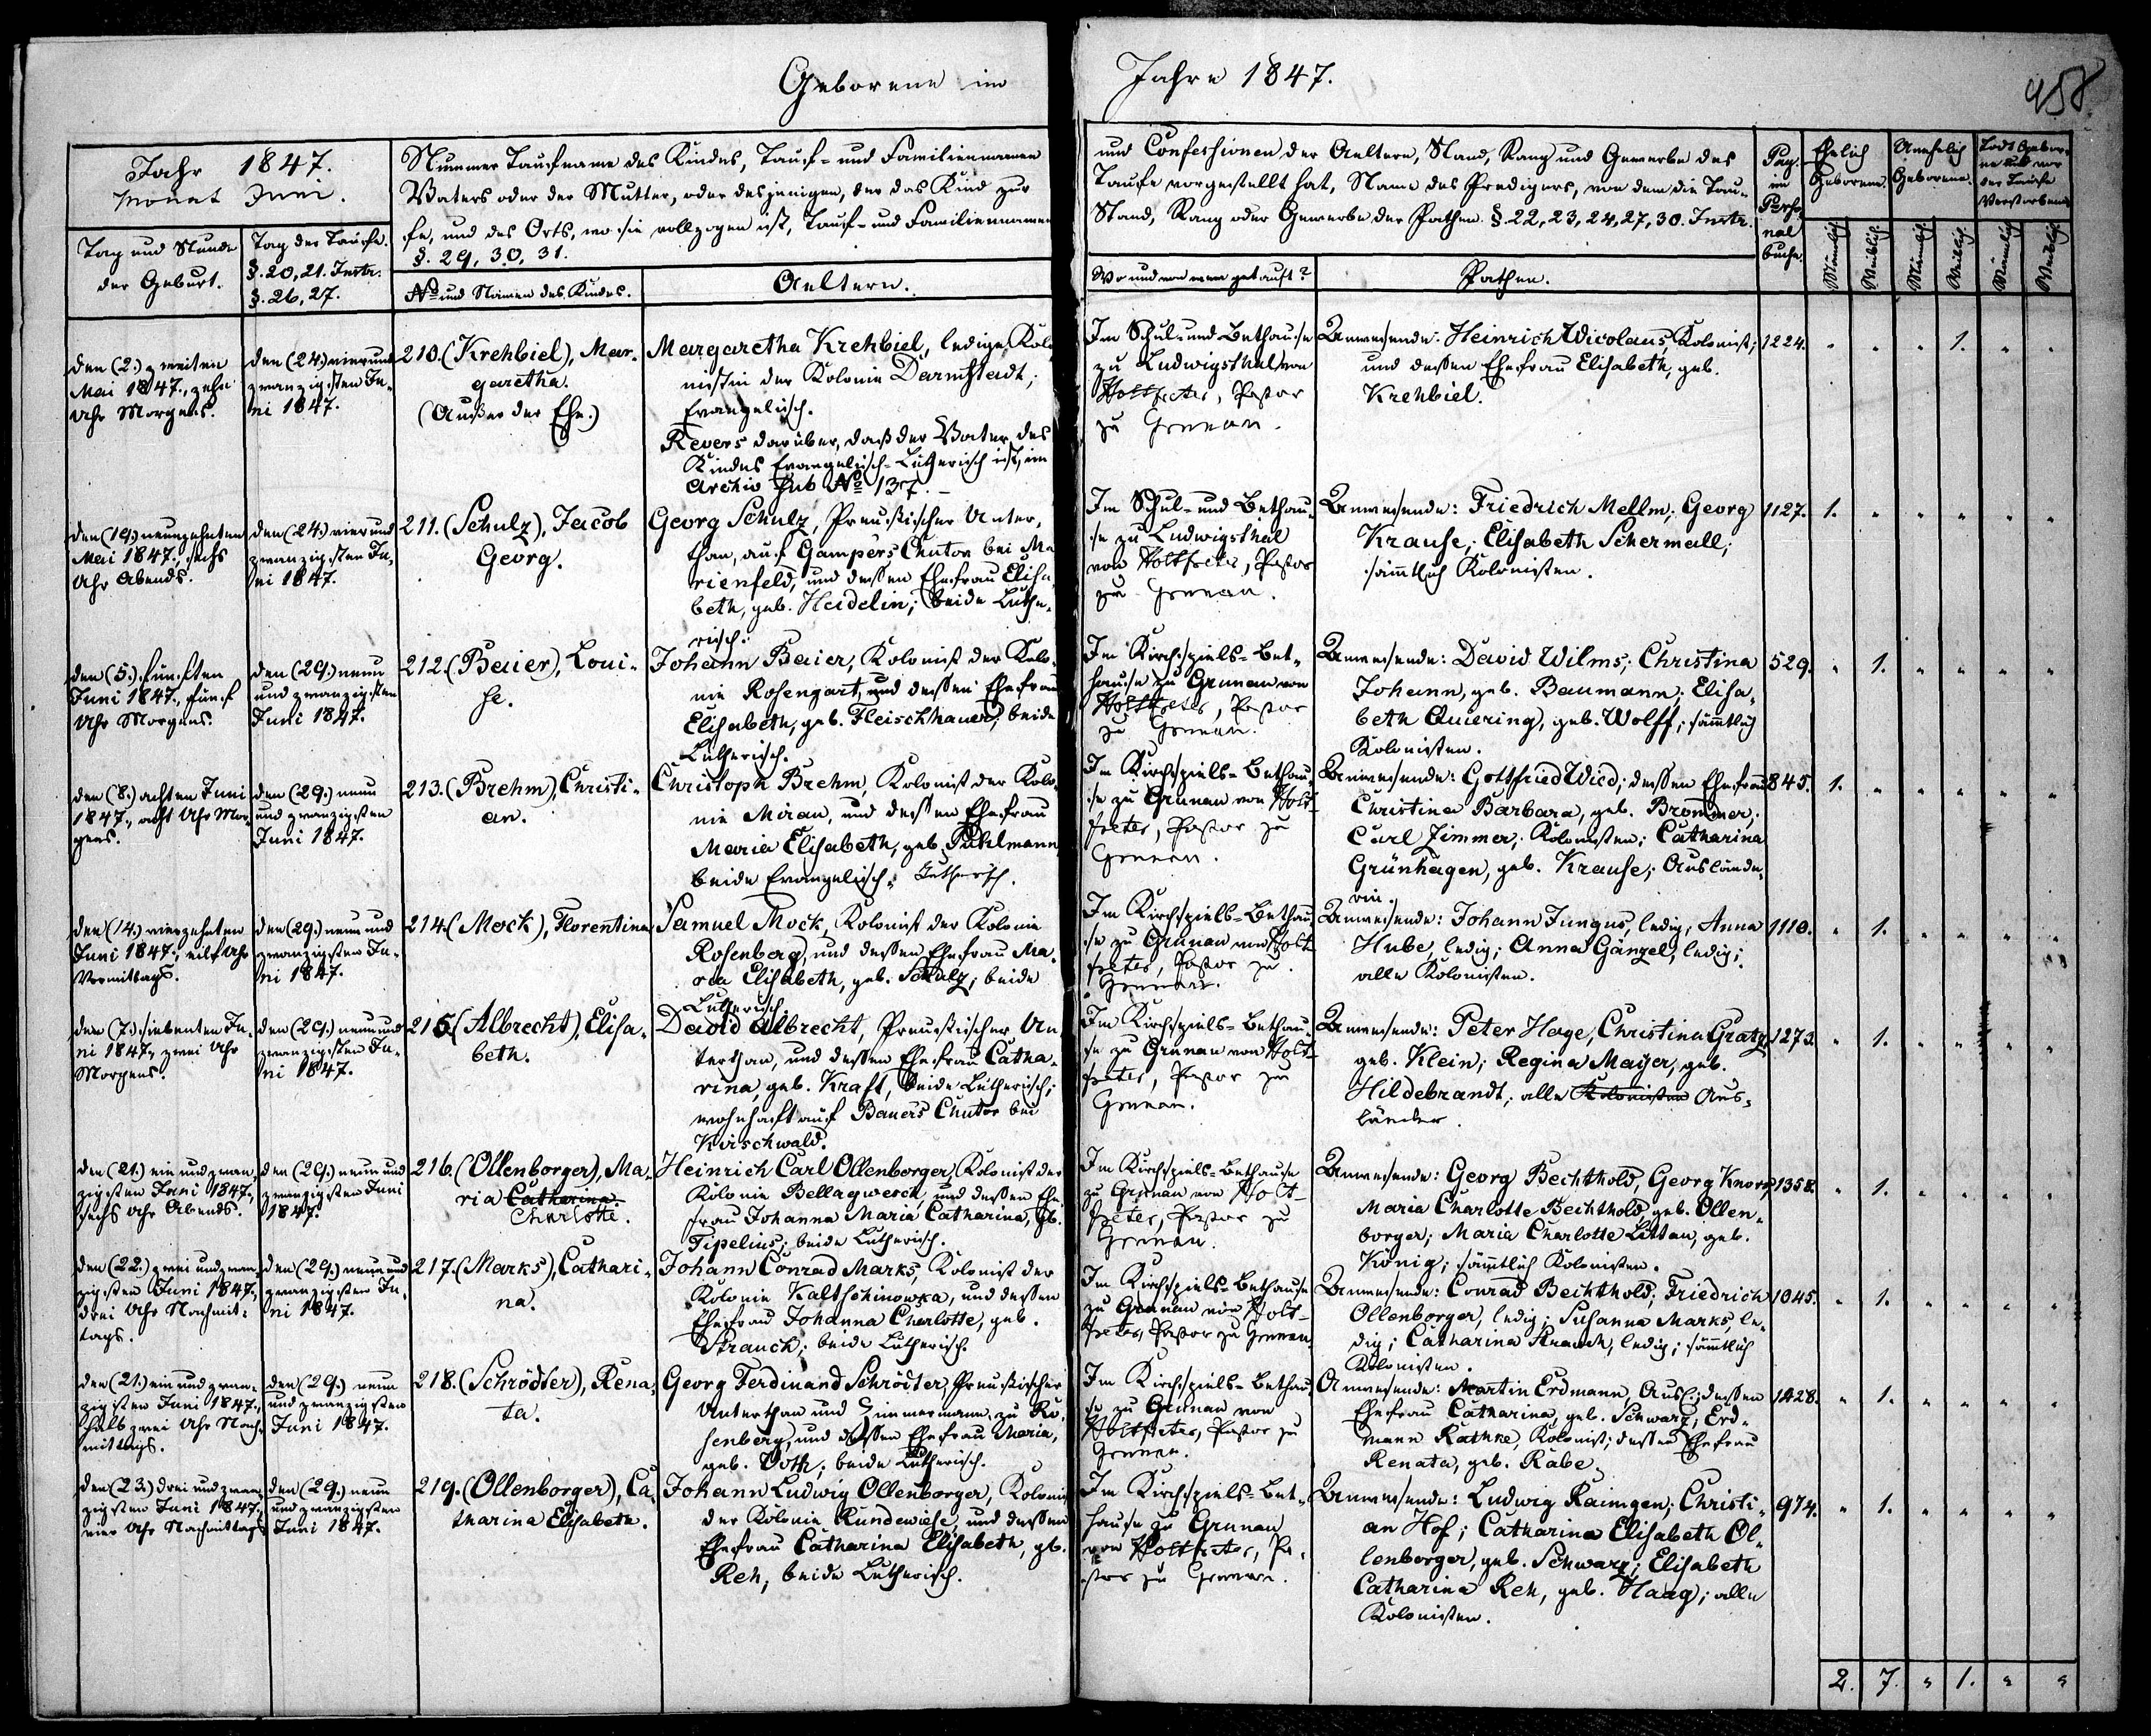 Geborene im Jahre 1847.
458
Jahr 1847.
Monat Juni.
Tag und Stunde
der Geburt.
Tag der Taufe.
§. 20, 21. Instr.
§. 26, 27.
Nummer Taufname des Kindes, Tauf- und Familiennamen
Vaters oder der Mutter, oder desjenigen, der das Kind zur
fe, und des Orts, wo sie vollzogen ist, Tauf- und Familiennamen
§. 29, 30, 31.
No und Namen des Kindes.
Aeltern.
und Confessionen der Aeltern, Stand, Rang und Gewerbe des
Taufe vorgestellt hat, Name des Predigers, von dem die Tau-
Stand, Rang oder Gewerbe der Pathen. §. 22, 23, 24, 27, 30. Instr.
Wo und von wem getauft?
Pathen.
Pag.
im
Perso
nal
buche.
Ehelich
Geborene.
Unehelich
Geborene.
Todt Gebor-
ne und vor
der Taufe
Verstorbene
Männlich.
Weiblich.
Männlich.
Weiblich.
Männlich.
Weiblich.
den (2.) zweiten
Mai 1847., zehn
Uhr Morgens.
den (24.) vier und
zwanzigsten Ju-
ni 1847.
210. (Krehbiel), Mar-
garetha.
(Außer der Ehe.)
Margaretha Krehbiel, ledige Kolo
nistin der Kolonie Darmstadt;
Evangelisch.
Revers darüber, daß der Vater des
Kindes Evangelisch-Lutherisch ist, im
Archiv sub No 137. -
Im Schul- und Bethause
zu Ludwigsthal von
Holtfreter, Pastor
zu Grunau.
Anwesende: Heinrich Nicolaus, Kolonist;
und dessen Ehefrau Elisabeth, geb.
Krehbiel.
1224. " " " 1. " "
den (19.) neunzehnten
Mai 1847., sechs
Uhr Abends.
den (24.) vier und
zwanzigsten Ju-
ni 1847.
211. (Schulz), Jacob
Georg.
Georg Schulz, Preußischer Unter-
than, auf Gampers Chutor bei Ma
rienfeld, und dessen Ehefrau Elisa
beth, geb. Heidelin; beide Luthe-
risch.
Im Schul- und Bethau-
se zu Ludwigsthal
von Holtfreter, Pastor
zu Grunau.
Anwesende: Friedrich Mellm; Georg
Krause; Elisabeth Schermall;
sämtlich Kolonisten.
1127. 1. " " " " "
den (5.) fünften
Juni 1847., fünf
Uhr Morgens.
den (29.) neun
und zwanzigsten
Juni 1847.
212. (Baier), Loui-
se.
Johann Baier, Kolonist der Kolo-
nie Rosengart, und dessen Ehefrau
Elisabeth, geb. Fleischhauer; beide
Lutherisch.
Im Kirchspiels-Bet-
hause zu Grunau von
Holtfreter, Pastor
zu Grunau.
Anwesende: David Wilms; Christina
Johann, geb. Baumann; Elisa-
beth Quiering, geb. Wolff; sämmtlich
Kolonisten.
529. " 1. " " " "
den (8.) achten Juni
1847., acht Uhr Mor-
gens.
den (29.) neun
und zwanzigsten
Juni 1847.
213. (Brehm), Christi-
an.
Christoph Brehm, Kolonist der Kolo-
nie Mirau, und dessen Ehefrau
Maria Elisabeth, geb. Puhlmann
beide Evangelisch-Lutherisch.
Im Kirchspiels-Bethau-
se zu Grunau von Holt-
freter, Pastor zu
Grunau.
Anwesende: Gottfried Wied; dessen Ehefrau
Christina Barbara, geb. Brommer;
Carl Zimmer; Kolonisten; Catharina
Grünhagen, geb. Krause; Auslände-
rin.
845. 1. " " " " "
den (14.) vierzehnten
Juni 1847., eilf Uhr
Vormittags.
den (29.) neun und
zwanzigsten Ju-
ni 1847.
214. (Mock), Florentina
Samuel Mock, Kolonist der Kolonie
Rosenberg, und dessen Ehefrau Ma-
ria Elisabeth, geb. Schulz; beide
Lutherisch.
Im Kirchspiels-Bethau-
se zu Grunau von Holt-
freter, Pastor zu
Grunau.
Anwesende: Johann Jungus, ledig; Anna
Hube, ledig; Anna Gänzel, ledig;
alle Kolonisten.
1110. " 1. " " " "
den (7.) siebenten Ju-
ni 1847., zwei Uhr
Morgens.
den (29.) neun und
zwanzigsten Ju-
ni 1847.
215. (Albrecht), Elisa-
beth.
David Albrecht, Preußischer Un
terthan, und dessen Ehefrau Catha-
rina, geb. Kraft, beide Lutherisch;
wohnhaft auf Bauers Chutor bei
Kirschwald.
Im Kirchspiels-Bethau-
se zu Grunau von Holt-
freter, Pastor zu
Grunau.
Anwesende: Peter Hage, Christina Gratz,
geb. Klein; Regina Maijer, geb.
Hildebrandt; alle Kolonisten Aus-
länder.
1273. " 1. " " " "
den (21.) ein und zwan-
zigsten Juni 1847.,
sechs Uhr Abends.
den (29.) neun und
zwanzigsten Juni
1847.
216. (Ollenborger), Ma-
ria Catharina
Charlotte.
Heinrich Carl Ollenborger, Kolonist der
Kolonie Bellagwesch, und dessen Ehe
frau Johanna Maria Catharina, gb.
Tipelius; beide Lutherisch.
Im Kirchspiels-Bethause
zu Grunau von Holt-
freter, Pastor zu
Grunau.
Anwesende: Georg Bechthold, Georg Knorr;
Maria Charlotte Bechthold, geb. Ollen-
borger; Maria Charlotte Littau, geb.
König; sämmtlich Kolonisten.
1358. " 1. " " " "
den (22.) zwei und zwan-
zigsten Juni 1847.,
drei Uhr Nachmit-
tags.
den (29.) neun und
zwanzigsten Ju-
ni 1847.
217. (Marks), Cathari-
na.
Johann Conrad Marks, Kolonist der
Kolonie Kaltschinowka, und dessen
Ehefrau Johanna Charlotte, geb.
Strauch; beide Lutherisch.
Im Kirchspiels-Bethause
zu Grunau von Holt-
freter, Pastor zu Grunau.
Anwesende: Conrad Bechthold; Friedrich
Ollenborger, ledig; Susanna Marks, le-
dig; Catharina Strauch, ledig; sämmtlich
Kolonisten.
1045. " 1. " " " "
den (21.) ein und zwan-
zigsten Juni 1847.,
halb zwei Uhr Nach-
mittags.
den (29.) neun
und zwanzigsten
Juni 1847.
218. (Schrödter), Rena-
ta.
Georg Ferdinand Schröder, Preußischer
Unterthan und Zimmermann, zu Ro-
senberg, und dessen Ehefrau Maria,
geb. Voth; beide Lutherisch.
Im Kirchspiels-Bethau-
se zu Grunau von
Holtfreter, Pastor zu
Grunau.
Anwesende: Martin Erdmann, Ausl.; dessen
Ehefrau Catharina, geb. Schwarz; Erd-
mann Rathke, Kolonist; dessen Ehefrau
Renata, geb. Rabe.
1428. " 1. " " " "
den (23.) drei und zwan-
zigsten Juni 1847.,
vier Uhr Nachmittags
den (29.) neun
und zwanzigsten
Juni 1847.
219. (Ollenborger), Ca-
tharina Elisabeth.
Johann Ludwig Ollenborger, Kolonist
der Kolonie Rundewiese, und dessen
Ehefrau Catharina Elisabeth, gb.
Reh; beide Lutherisch.
Im Kirchspiels-Bet-
hause zu Grunau
von Holtfreter, Pa-
stor zu Grunau.
Anwesende: Ludwig Raimgen; Christi-
an Hof; Catharina Elisabeth Ol-
lenborger, geb. Schwarz; Elisabeth
Catharina Reh, geb. Haag; alle
Kolonisten.
974. " 1. " " " "
2. 7. " 1. " "